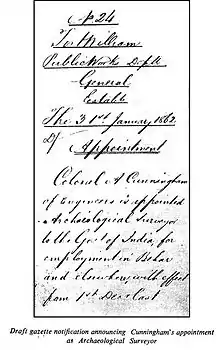 No 24
Fort William
Public Works Deptt
General
Establt
The 31st January 1862
Appointment
Colonel A Cunningham
of Engineers is appointed
Archaeological Surveyor
to the Govt of India, for
employment in Behar
and elsewhere with effect
from 1st Decr last
Draft gazette notification announcing Cunningham's appointment
as Archaeological Surveyor